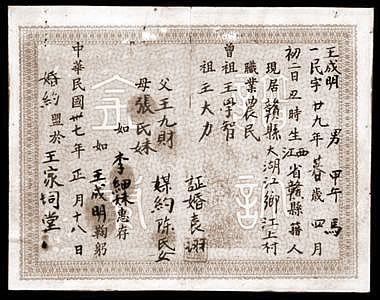 王成明 男 甲午 馬
一民字廿九年 歲 四月
初二日丑時生江西省贛縣籍人
現居贛縣大湖江鄉江上村
職業農民
曾祖王學智
祖王大力
証婚袁
父王九財
母張氏妹 媒約陳氏女
如 李細妹惠存
如 王成明鞠躬
中華民國卅七年正月十八日
婚約盟於王家祠堂